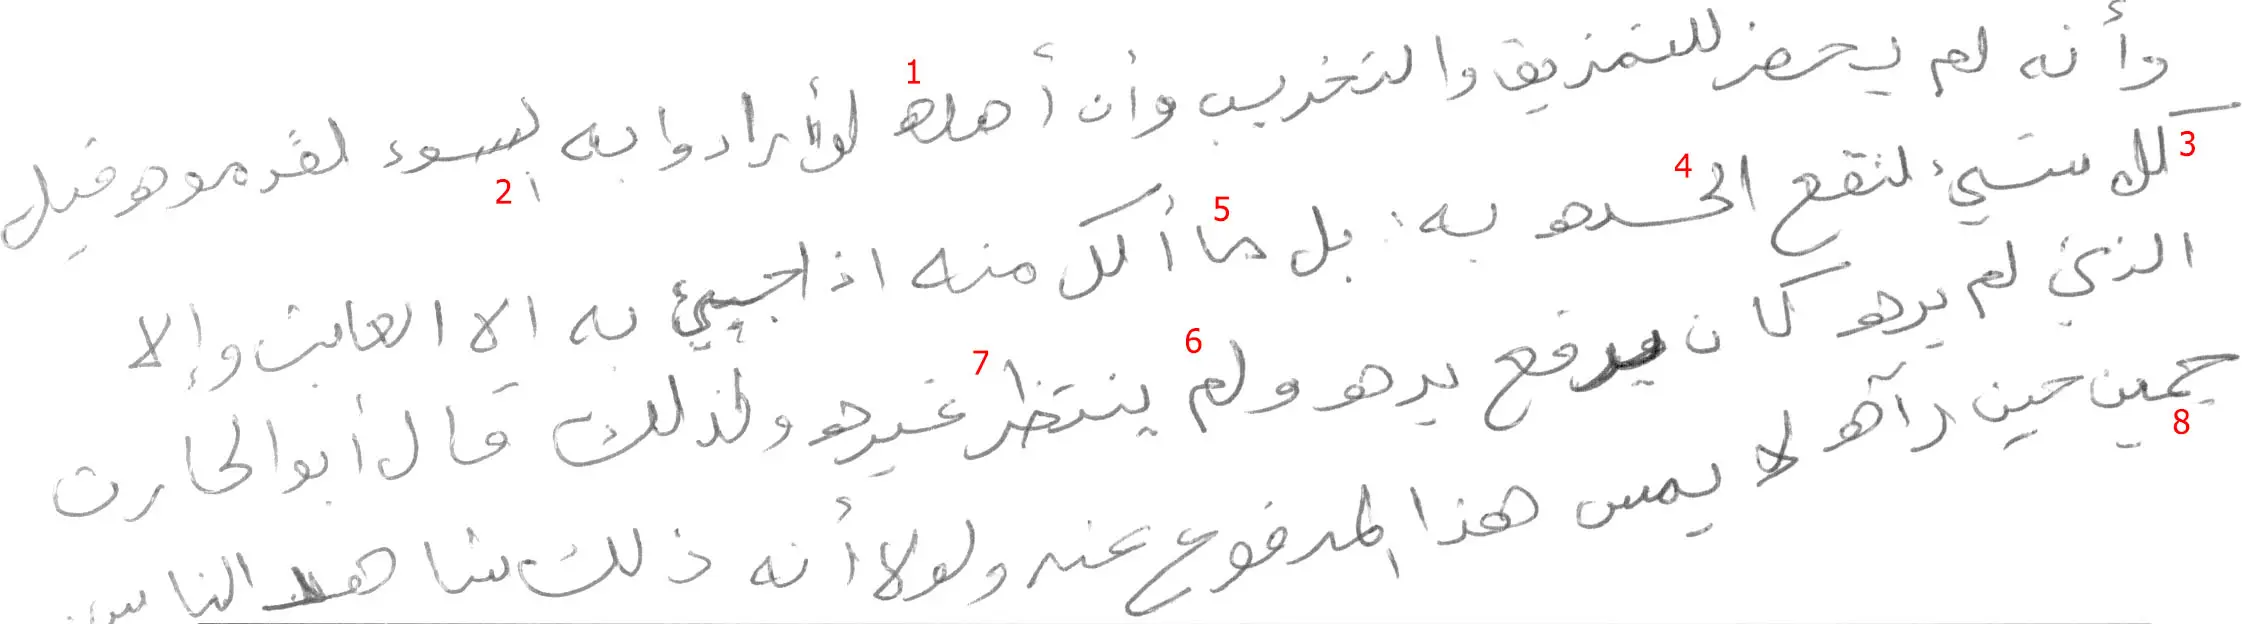 وأنه لم يحضر للتمزيق والتخريب وأن أهله لو أرادوا به السوء لقدموه قبل
كل شيء لتقع الحده به: بل ما أكل منه اذا جيئ به الا العابث وإلا
الذي لم يره كان يرفع يده ولم ينتظر غيره ولذلك قال أبو الحارث
جمين حين رآه لا يمس هذا المدفوع عنه ولولا أنه ذلك شاهد الناس
1
2
3
4
5
6
7
8